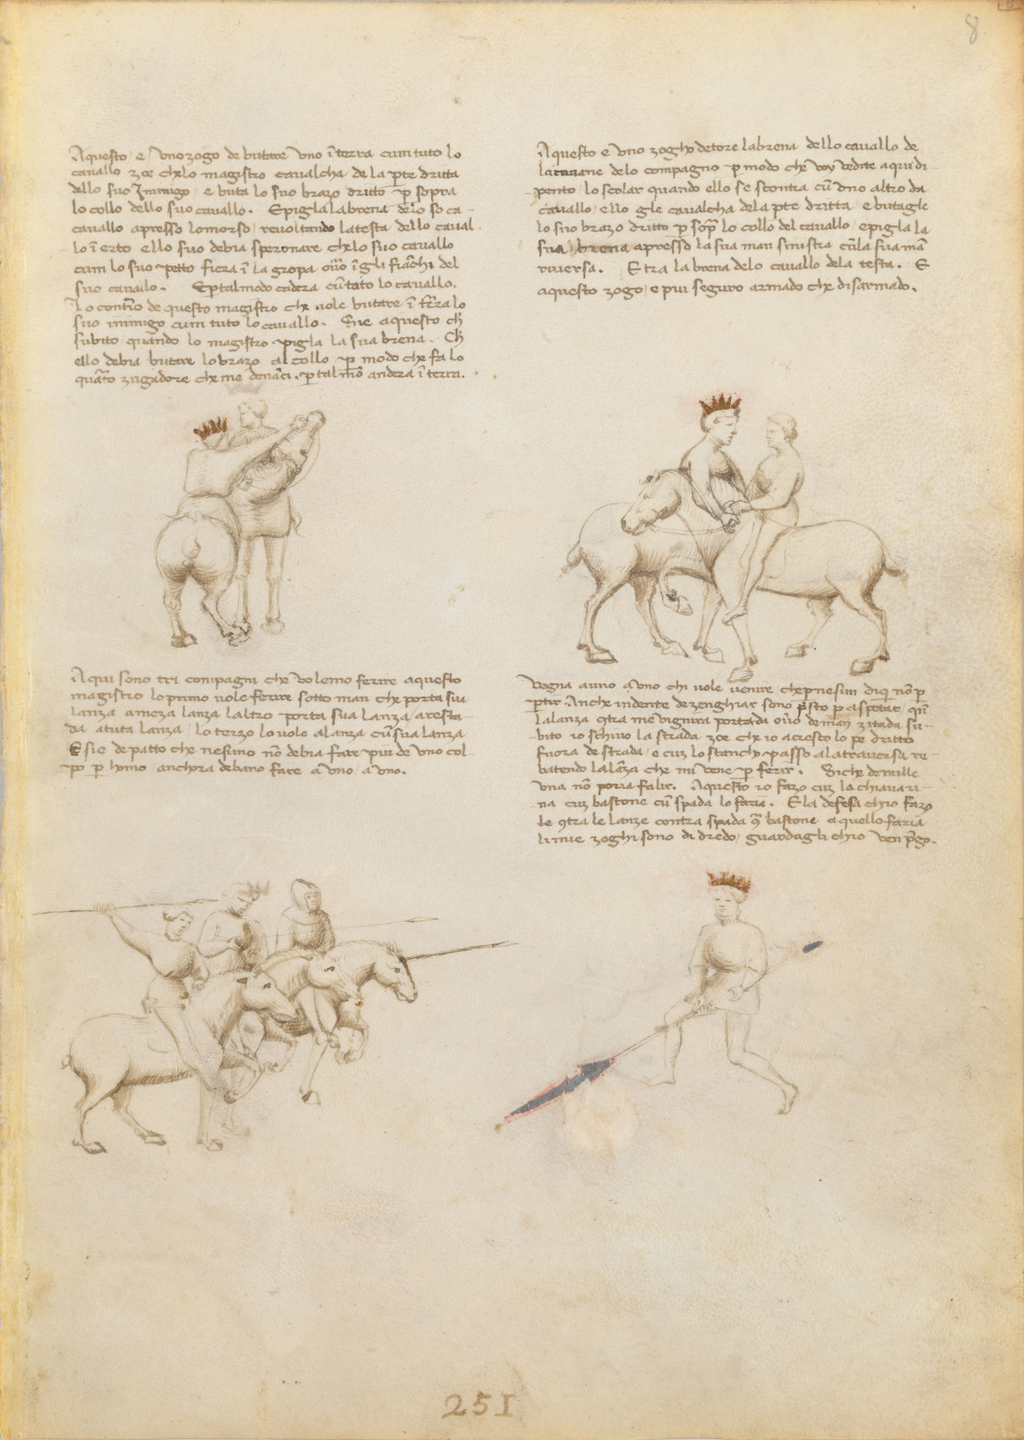 8
Aquesto e uno zogo de butare uno ī terra cum tuto lo
cavallo zoe chelo magistro cavalcha de la p̱te dritta
dello suo Inimigo e buta lo suo brazo dritto p̱ sopra
lo collo dello suo cavallo. E pigla la brena delo so ca-
cavallo apresso lo morso, revoltando la testa dello caval
lo ī erto e llo suo debia speronare che lo suo cavallo
cum lo suo petto fiera ī la gropa ovo ī gli fiāchi del
suo cavallo. E p̱ tal modo cadera cū tuto lo cavallo.
Lo contrō de questo magistro che vole butare ī t̄ra lo
suo inimigo cum tuto lo cavallo. Sie aquesto ch̄
subito quando lo magistro pigla la sua brena. Ch̄
ello debia butare lo brazo al collo p̱ modo che fa lo
quarto zugadore che me denāci. p̱ tal mō andera ī terra.
Aquesto e uno zogho de tore la brena dello cavallo de
la mane delo compagno p̱ modo che voy vedete aqui di-
pento lo scolar quando ello se scontra cū uno altro da
cavallo, ello gle cavalcha dela p̱te dritta e butagle
lo suo brazo dritto p̱ sop̄ lo collo del cavallo, e pigla la
sua brena apresso la sua man sinistra cū la sua mā
riversa. E tra la brena delo cavallo dela testa. E
aquesto zogo e piu seguro armado che disarmado.
Aqui sono tri compagni che volemo ferire aquesto
magistro lo primo vole ferire sotto man che porta sua
lanza a meza lanza laltro porta sua lanza aresta-
da a tuta lanza, lo terzo lo vole alanza cū sua lanza
E sie de patto che nesimo nō debia fare piu de uno col
po p̱ homo anchora debano fare a uno, a uno.
Vegna auno a uno chi vole venire che p̱ nesun diq̄ nō p̱
p̱tir. Anche in dente de zenghiar sono p̄sto p̱ aspetar. Qn̄
la lanza 9tra me vignira portada ovō de man zitada su-
bito io schivo la strada zoe che io acresco lo pe dritto
fuora de strada, e cuz lo stancho passo ala traversa re-
batendo la lāza che mi vene p̱ ferir. Siche de mille
una nō poria falir. Aquesto io fazo cuz la chiavari-
na cuz bastone cū spada lo faria. E la defesa ch io fazo
le 9tra le lanze contra spada 9 bastone aquello faria
li mie zoghi sono di dredo, guardagli ch io ven p̄go.
251